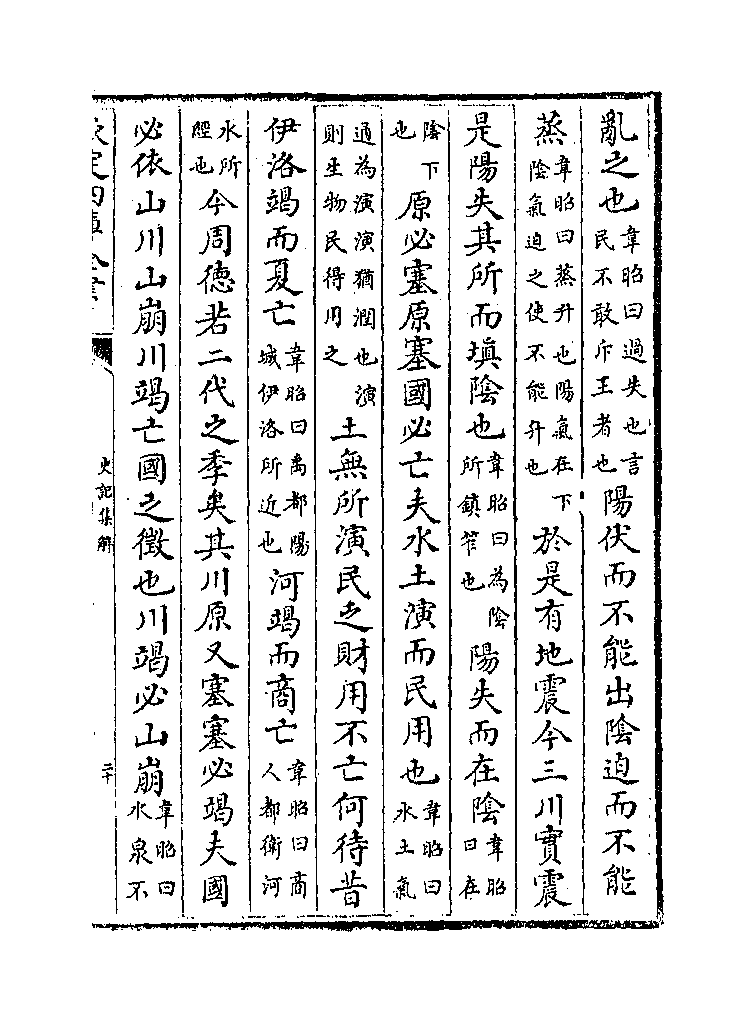 亂之也韋昭曰過失也言民不敢斥王者也陽伏而不能出隂迫而不能
蒸韋昭曰蒸升也陽氣在下隂氣迫之使不能升也於是有地震今三川實震
是陽失其所而塡隂也韋昭曰為隂所鎮笮也陽失而在隂韋昭曰在
隂下也原必塞原塞國必亡夫水土演而民用也韋昭曰水土氣
通為演演猶潤也演則生物民得用之土無所演民乏財用不亡何待昔
伊洛竭而夏亡韋昭曰禹都陽城伊洛所近也河竭而商亡韋昭曰商人都衛河
水所經也今周徳若二代之季矣其川原又塞塞必竭夫國
必依山川山崩川竭亡國之徵也川竭必山崩韋昭曰水泉不
欽定四庫全書
史記集解
二十